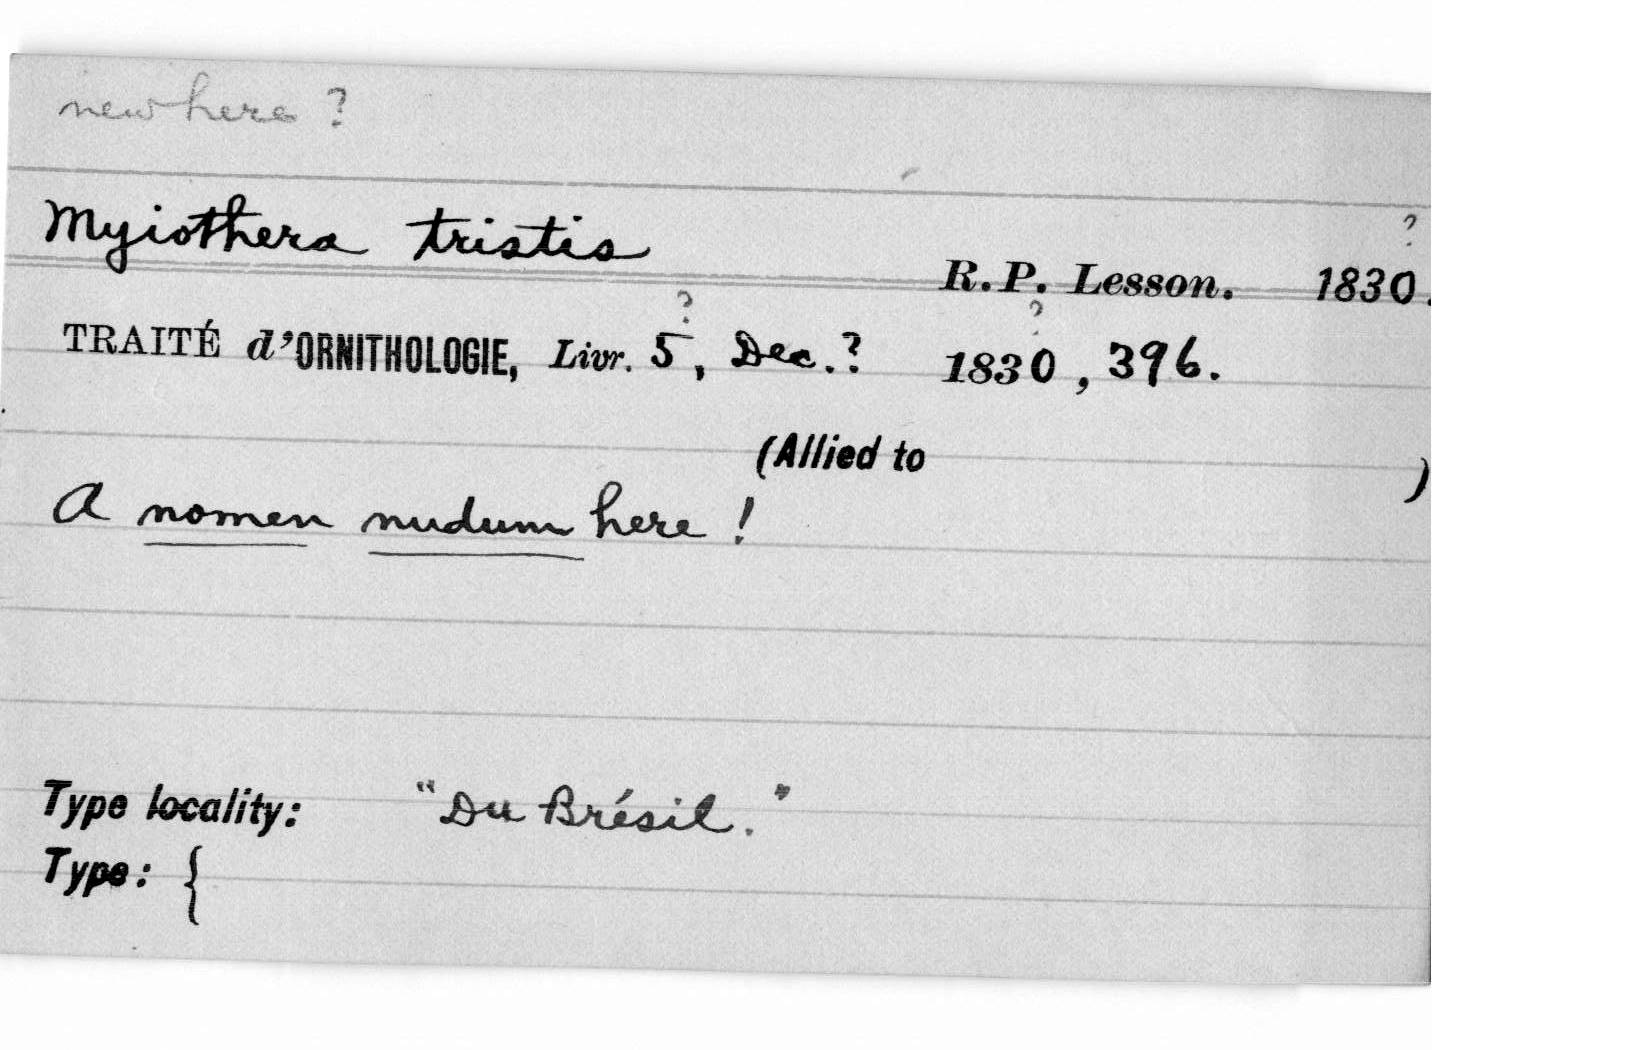 new here ?
?
Myiothera tristis R.P. Lesson. 1830.
? ?
TRAITÉ d'ORNITHOLOGIE, Livr. 5, Dec.? 1830, 396.
(Allied to )
A nomen nudum here !
Type locality: "Du Brésil."
Type: {